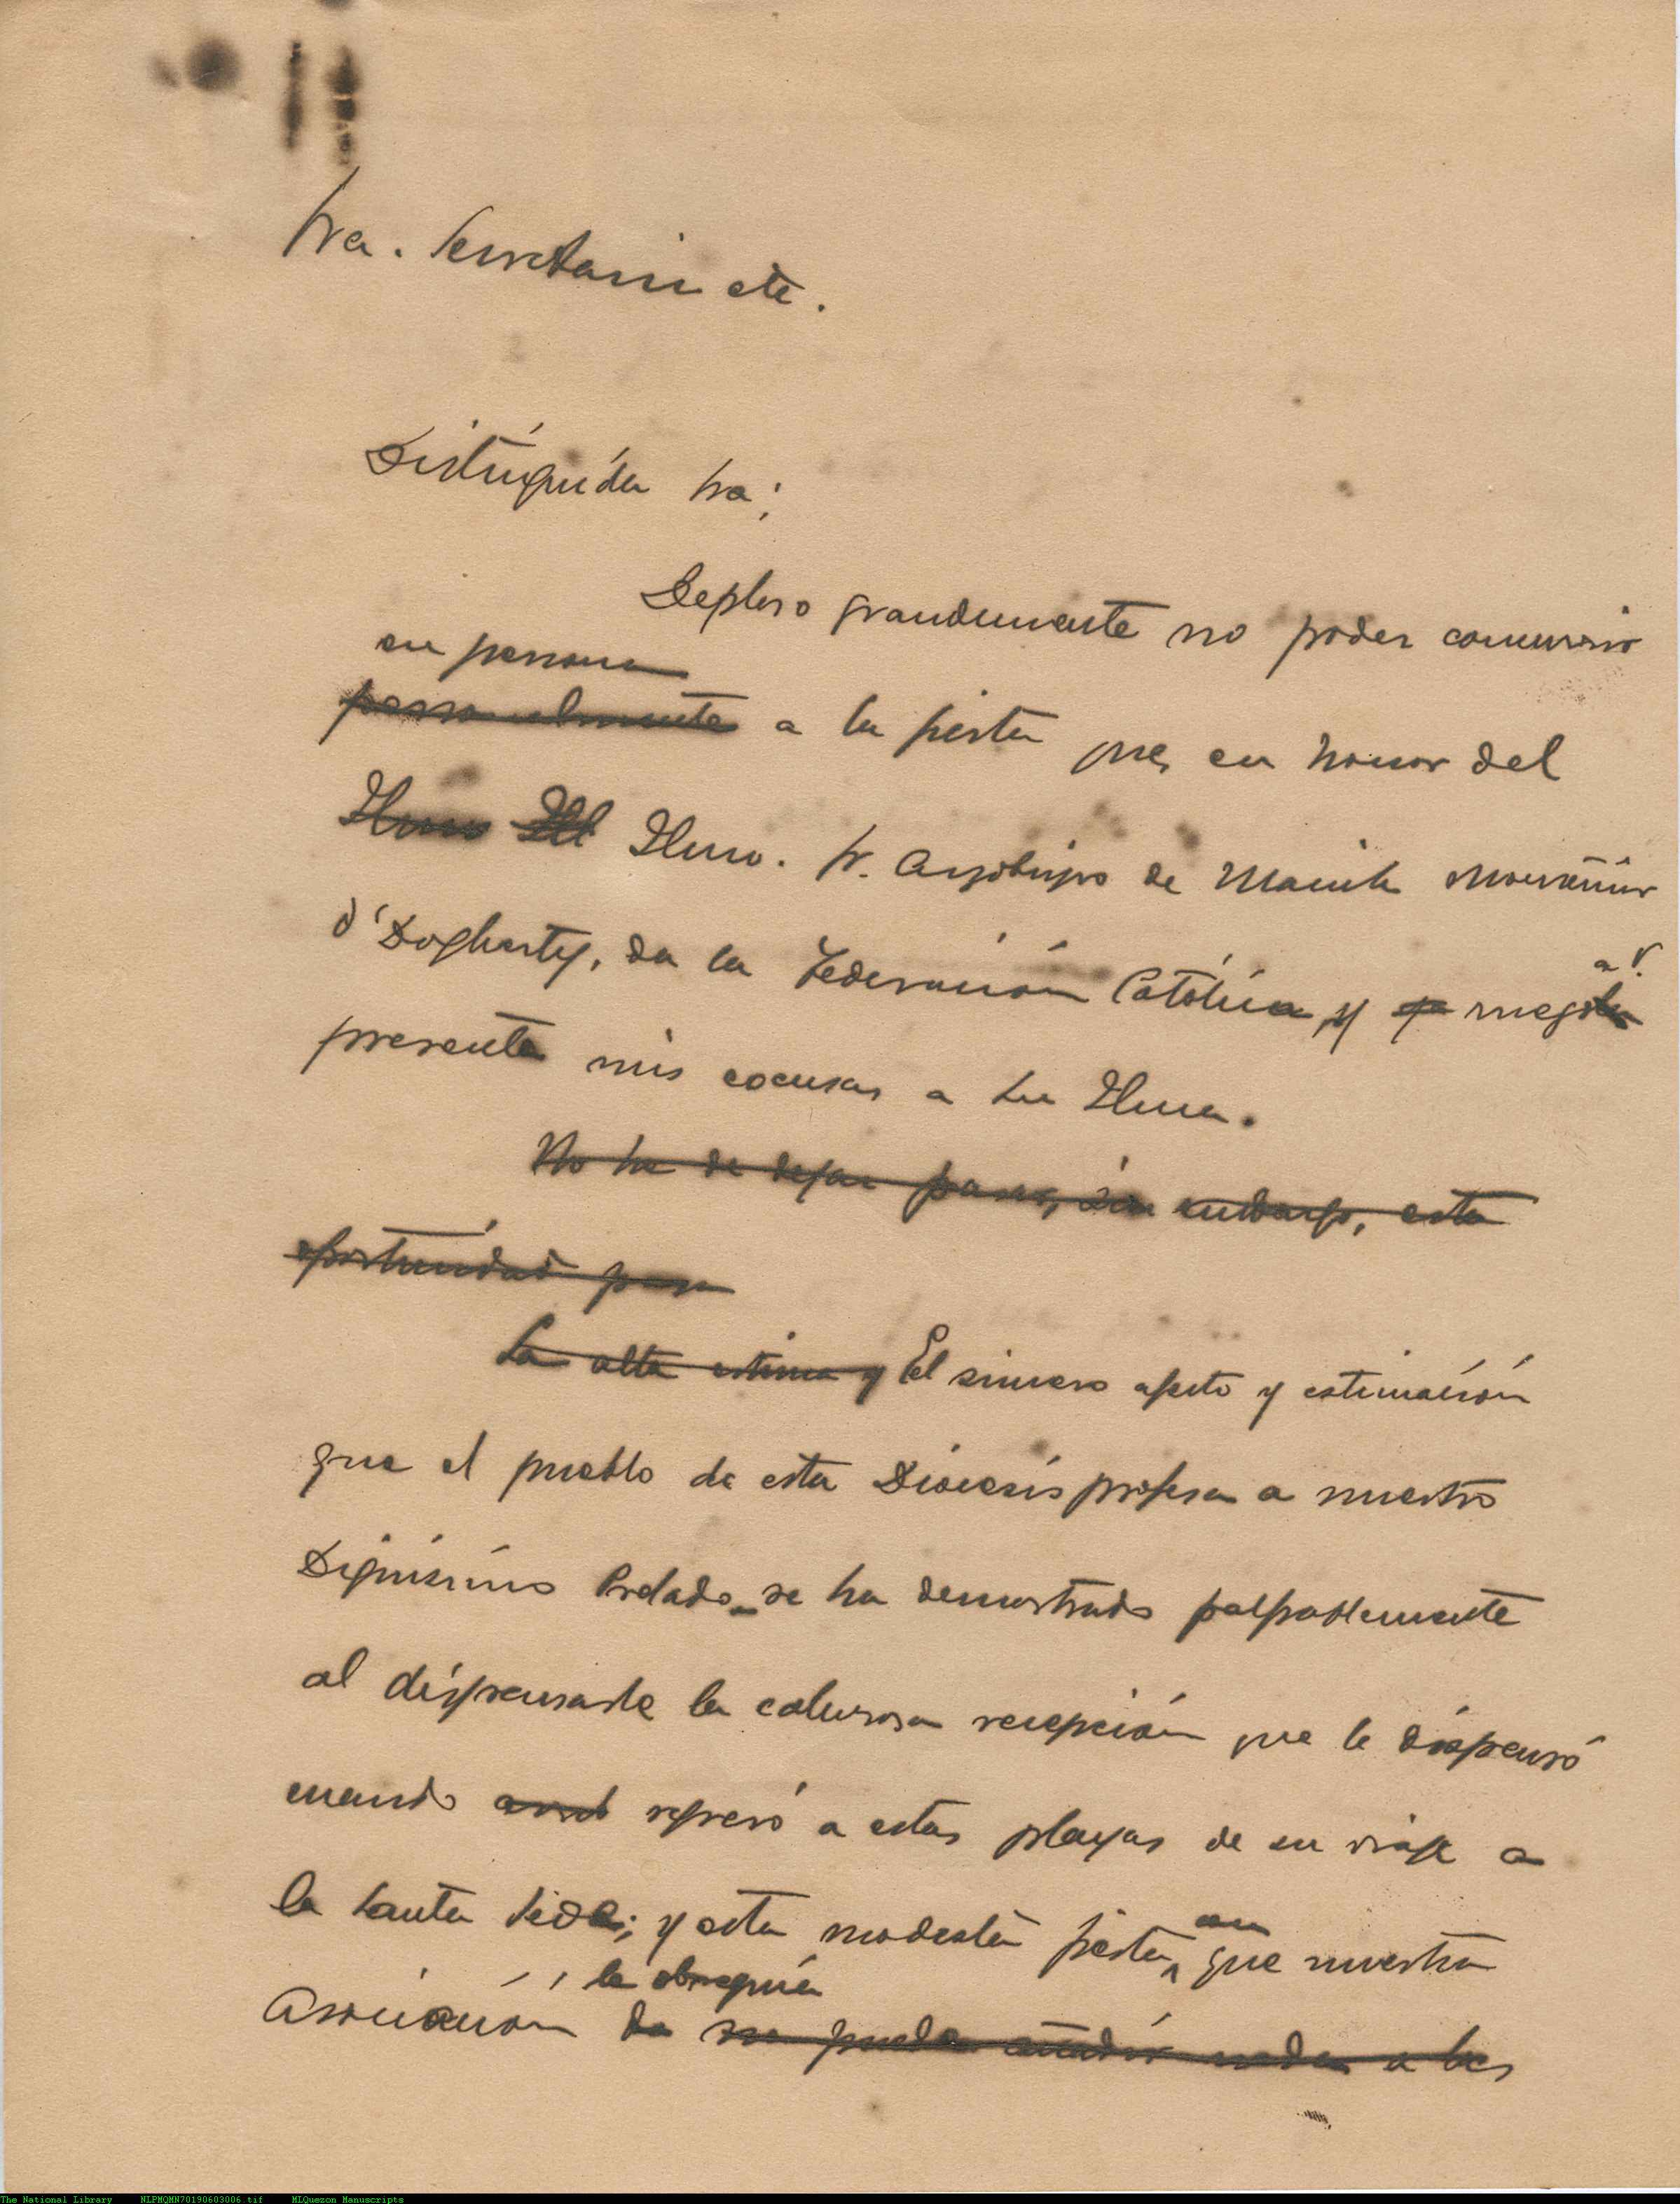 Sra. Secretaria etc.
Distinguida Sra:
Deploro grandemente no poder concurrir
en persona
personalmente a la fiesta que, en honor del
Ilmo Ill Ilmo. Sr. Arzobispo de Manila Monseñor
O'Dogherty, da la Federación Católica, y ruego
a V.
presente mis escusas a Su Ilma.
No he de dejar pasar, sin embargo, esta
oportunidad para
La alta estima y El sincero afecto y estimación
que el pueblo de esta Diócesis profesa a nuestro
Dignísimo Prelado se ha demostrado palpablemente
al dispensarle la calurosa recepción que le dispensó
cuando regresó a estas playas de su viaje a
la Santa Sede; y esta modesta fiesta con que nuestra
le obsequia
Asociación da no puede añadir nada a las
The National Library NLPMQMN70190603006.tif MLQuezon Manuscripts